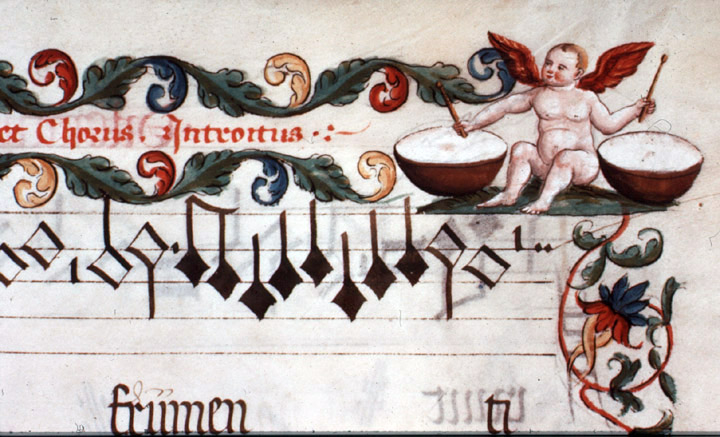 et Chorus. Introitus .:~
frumen ti